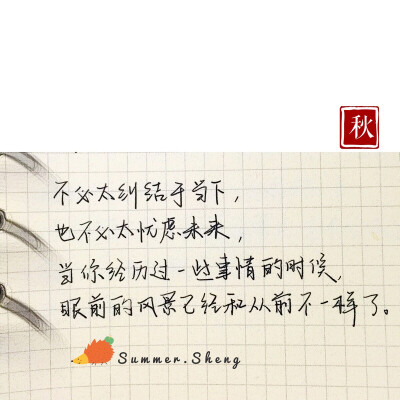 秋
不必太纠结于当下，
也不必太忧虑未来，
当你经历过一些事情的时候，
眼前的风景已经和从前不一样了。
Summer.Sheng